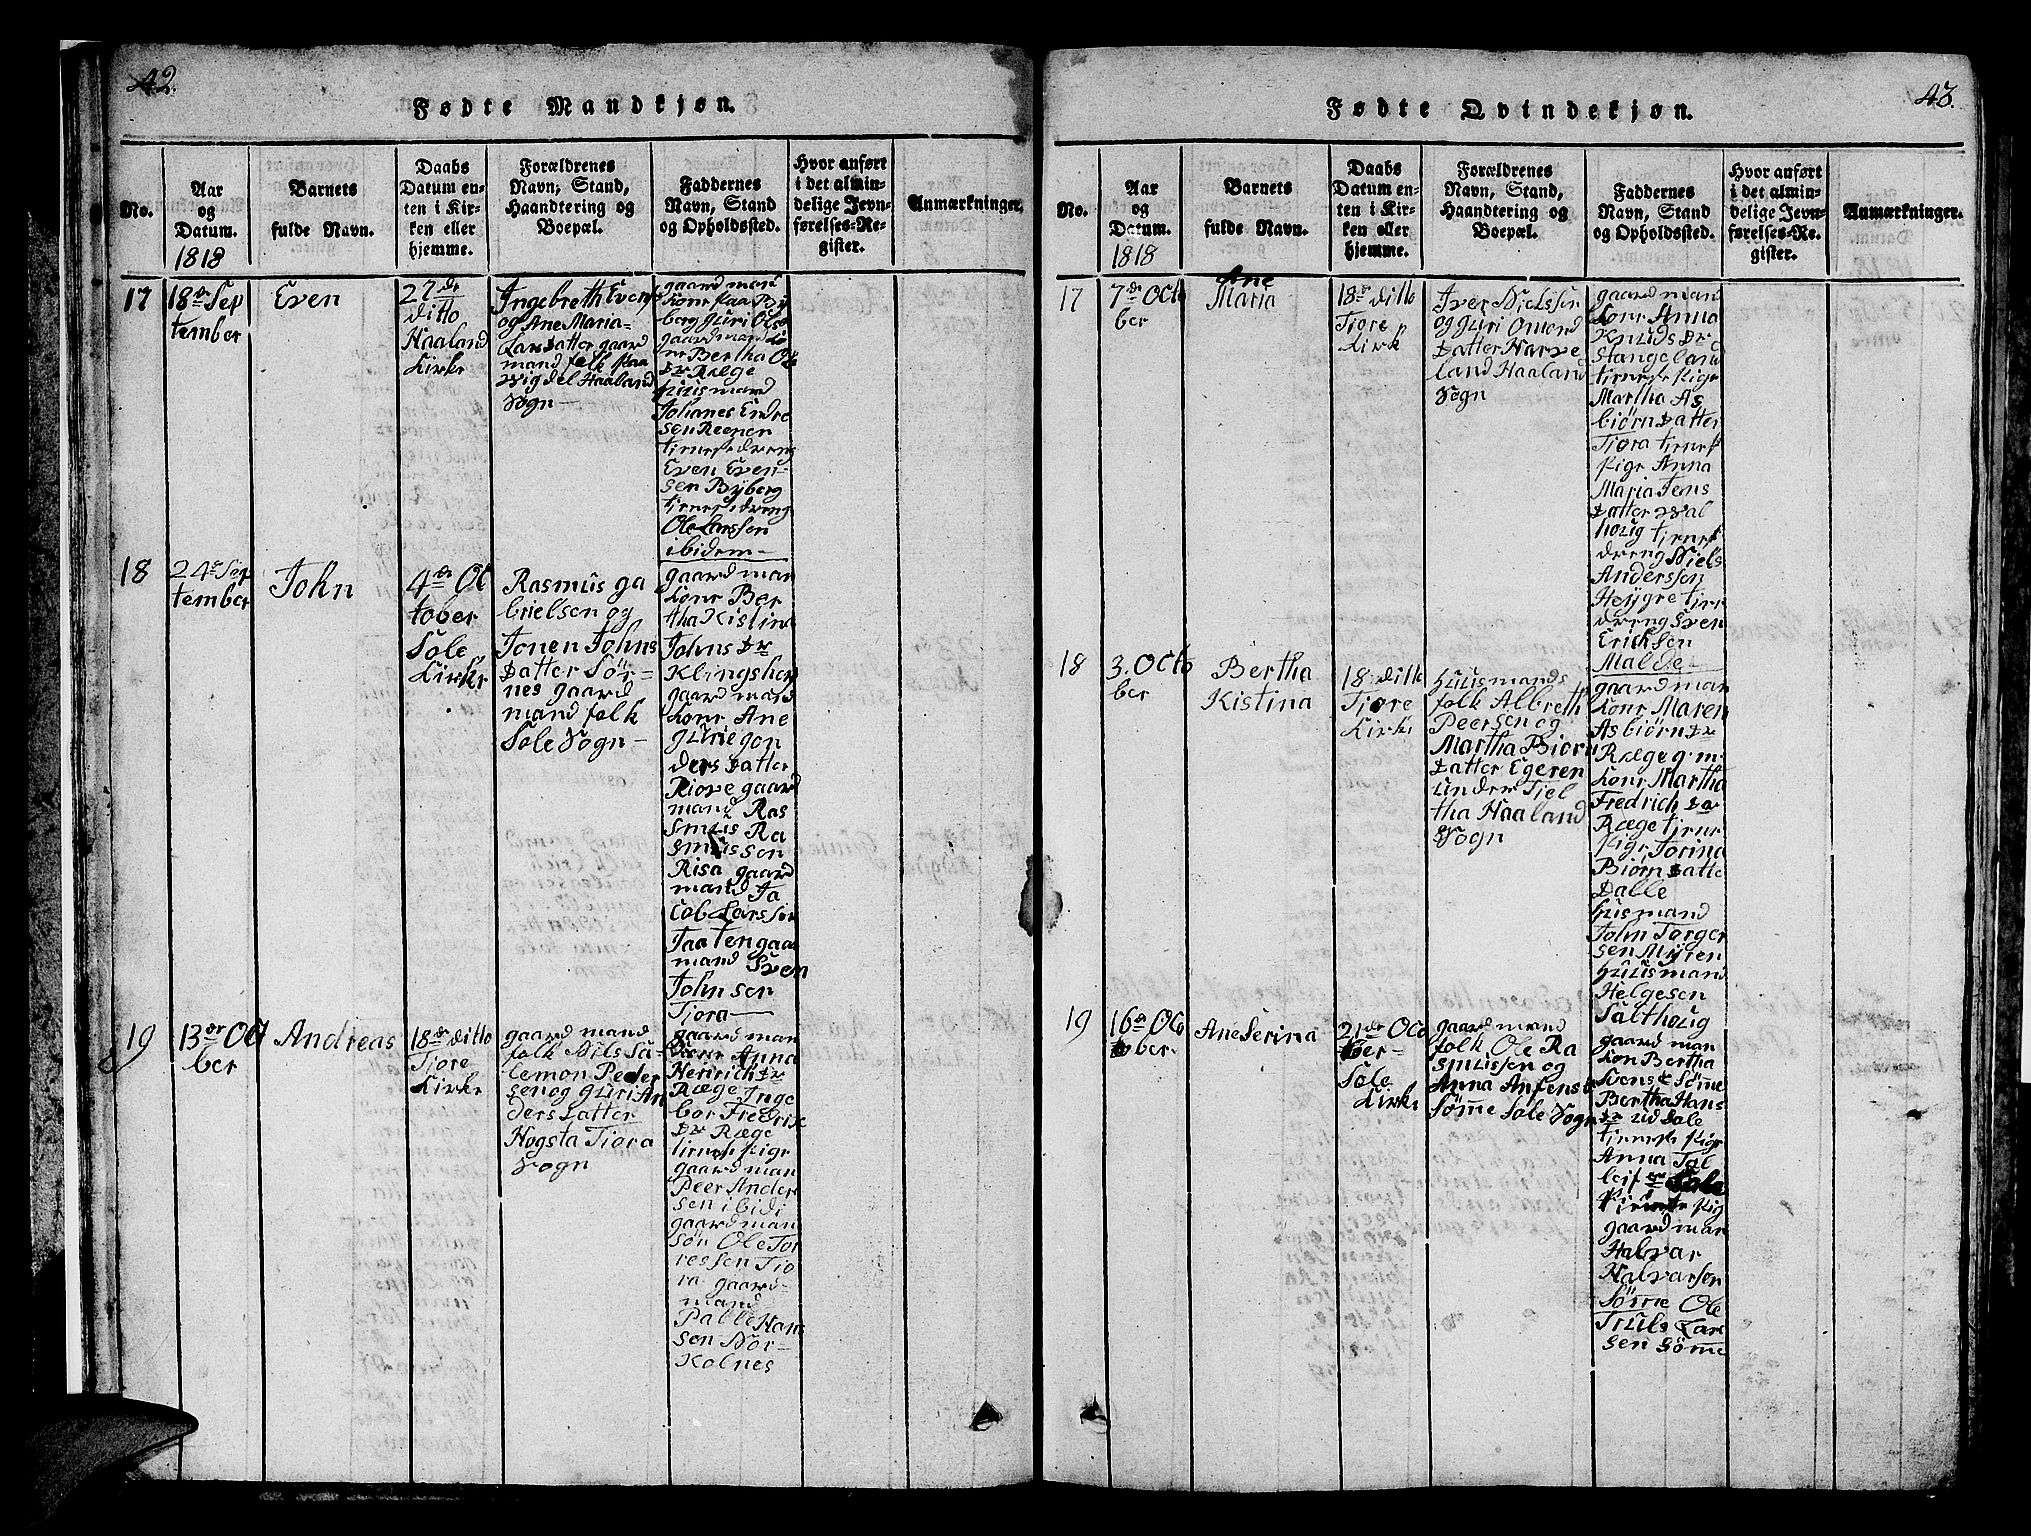 42.
Fødte Mandkjøn.
No.
Aar
og
Datum.
1818
Barnets
fulde Navn.
Daabs
Datum en-
ten i Kir-
ken eller
hjemme.
Forældrenes
Navn, Stand,
Haandtering og
Boepæl.
Faddernes
Navn, Stand
og Opholdssted.
Hvor anført
i det almin-
delige Jevn-
førelses-Re-
gister.
Anmærkninger.
17
18de Sep
tember
Even
27de
ditto
Haaland
Kirke
Ingebreth Evens
og Ane Maria
Lars Datter gaard
mand folk paa
Vigdel Haaland
Sogn
gaard man
Konr paa By
berg Guri Ols
gaard mand Ko
nr Bertha Ols
Dr Ræge
Huusmand
Johanes Endre
sen Reener
tieneste dreng
Even Even-
sen Byberg
tieneste dreng
Ole Larssen
ibidem
18
24de Sep
tember
John
4de Oc
tober
Sole
Kirke
Rasmus ga
brielsen og
Jonen Johns
Datter Sör-
nes gaard
mand folk
Sole Sogn
gaard man
Konr Ber
tha Kistina
Johns Dr
Klingshey
gaard mand
Konr Ane
Gurie gon
ders Datter
Riore gaard
mand Ras
smus Ra
smussen
Risa gaard
mand Ja
cob Larssen
Taa Ten gaar
mand Sven
Johnsen
Tjora
19
13de Octo
ber
Andreas
18de ditto
Tjore
Kirke
gaard mand
folk Nils Sa-
lemon Peder
sen og Guri An
ders Datter
Hogsta Tjora
Sogn
gaard man
Konr Anna
Heinrich Dr
Ræge Inge
bor Fredrik
Dr Ræge
tieneste Pige
gaard man
Peer Ander
sen ibidi
gaard man
sön Ole Tor
ressen Tjo
ra gaard-
mand
Palle Hans
sen Nor-
Kolnes
43.
Fødte Qvindekjøn.
No.
Aar
og
Datum.
1818
Barnets
fulde Navn.
Daabs
Datum en-
ten i Kir-
ken eller
hjemme.
Forældrenes
Navn, Stand,
Haandtering og
Boepæl.
Faddernes
Navn, Stand
og Opholdssted.
Hvor anført
i det almin-
delige Jevn-
førelses-Re-
gister.
Anmærkninger.
17
7de Octo
ber
Ane
Maria
18de ditto
Tjore
Kirk
Iver Nielssen
og Guri Omond
Datter Harve
land Haaland
Sogn
gaard mand
Konr Anna
Knuds Dr
Stangeland
tieneste Pige
Martha As
biörn Datter
Tjora tienest
Pige Anna
Maria Jens
Datter Sval
houg tienest
dreng Niels
Anderssen
Heÿgre tiene
dreng Sven
Ericksen
Malde
18
3. Octo
ber
Bertha
Kistina
18 ditto
Tjore
Kirke
Huusmands
folk Albreth
Peersen og
Martha Biorn
Datter Egeren
under Tjel
tha Haaland
Sogn
gaard man
Konr Maren
Asbiörn Dr
Ræge g.m
Konr Martha
Fredrich Dr
Ræge tiene
Pige Torina
Biörn Datte
Dalle
Huusmand
John Torger
sen Myren
Huusmand
Helgesen
Salthoug
19
16de Octo
ber
Ane Serina
21de Octo
ber
Sole
Kirke
gaard mand
folk Ole Ra
smussen og
Anna Anfens Dr
Sömme Sole Sogn
gaard man
Kon Bertha
Svens Dr Sömme
Bertha Hans
Dr ud Sole
tieneste Pige
Anna Tol
leif Dr Sole
tieneste Pige
gaard man
Halvar
Halvarsen
Sömme Ole
Truls Lar
sen Sömme